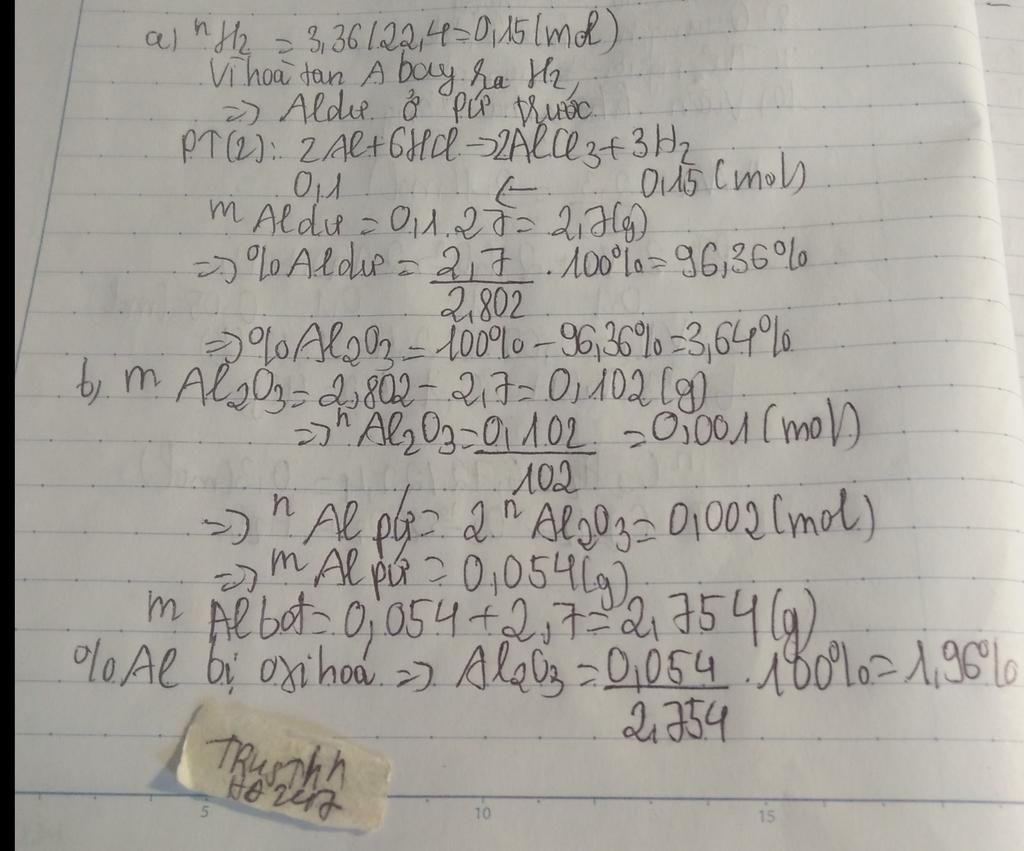 a) nH2 = 3,36/22,4=0,15(mol)
Vì hoà tan A bay ra H2,
=> Al dư ở pư trước
PT(2): 2Al+6HCl->2AlCl3+3H2
0,1 <- 0,15 (mol)
m Al dư = 0,1.27= 2,7(g)
=> % Al dư = 2,7/2,802 . 100% = 96,36%
=> % Al2O3 = 100% - 96,36% = 3,64%
b, m Al2O3 = 2,802 - 2,7 = 0,102(g)
=> n Al2O3 = 0,102/102 = 0,001(mol)
=> n Al pứ = 2 n Al2O3 = 0,002(mol)
=> m Al pứ = 0,054(g)
m Al bot = 0,054 + 2,7 = 2,754(g)
% Al bị oxi hoá => Al2O3 = 0,054/2,754 . 100% = 1,96%
5 10 15